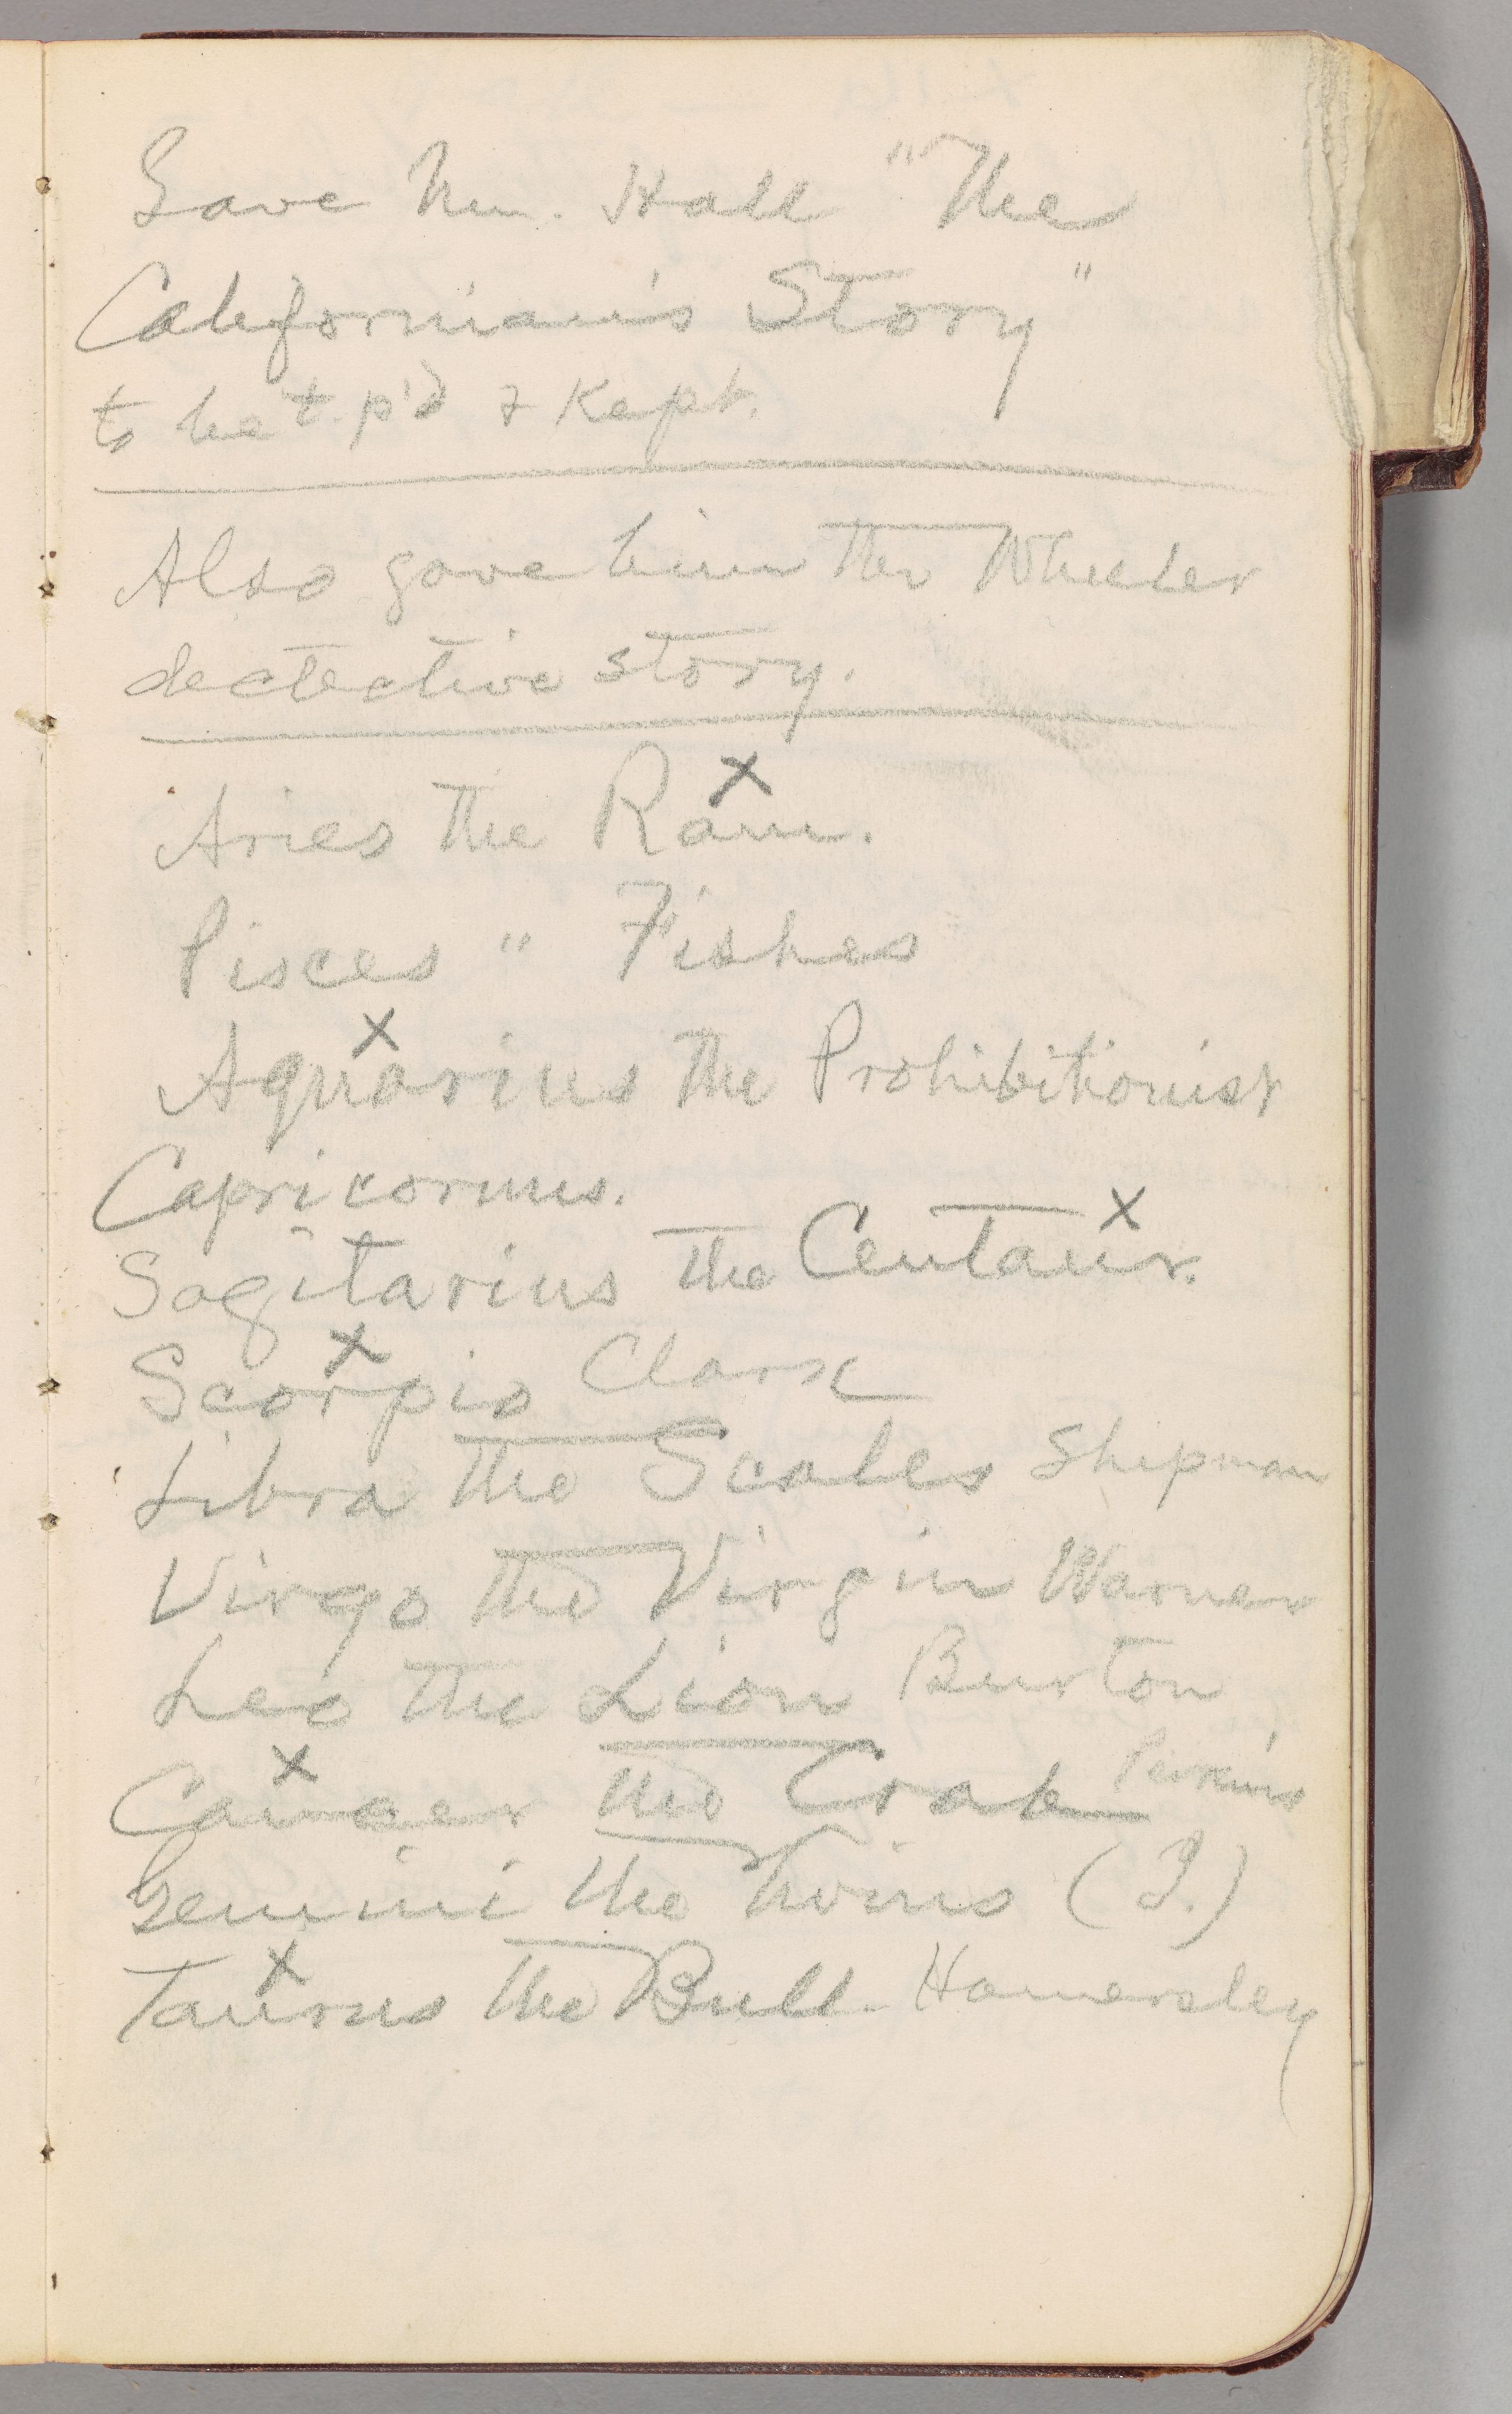 Gave Mr. Hall "The
Californian's Story"
to be t. p'd & kept.
Also gave him the Wheeler
dectective story.
Aries the Ram. X
Pisces " Fishes
Aquarius the Prohibitionist X
Capricornus.
Sagitarius the Centaur. X
Scorpio Clark X
Libra the Scales Shipman
Virgo the Virgin Warner
Leo the Lion Burton
Cancer the Crab Perkins X
Gemini the Twins (J.)
Taurus the Bull. Hamersley X